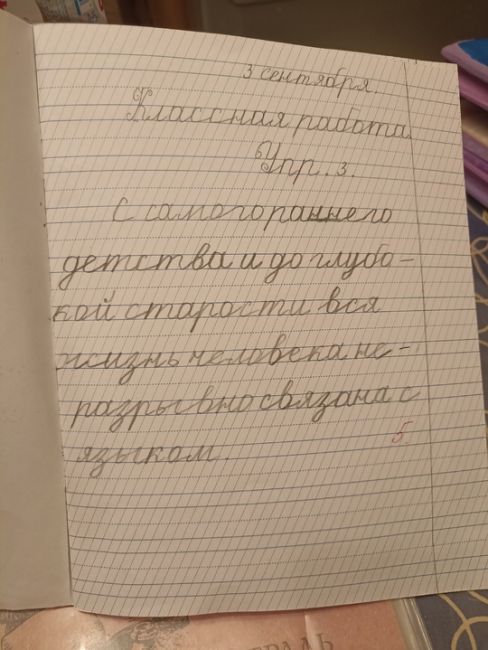 3 сентября.
Классная работа.
Упр. 3.
С самого раннего
детства и до глубо-
кой старости вся
жизнь человека не-
разрывно связана с
языком.
5